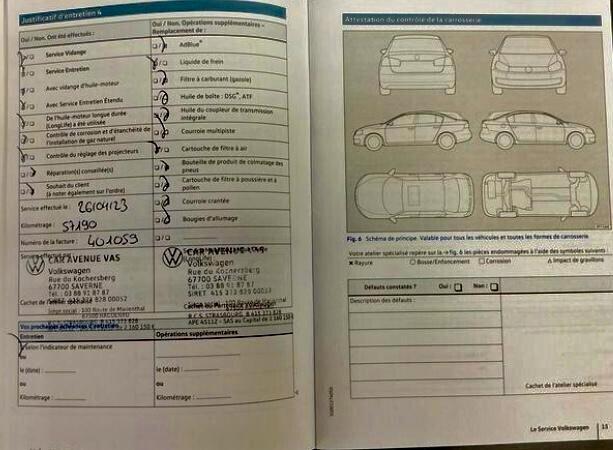 Justificatif d'entretien 4
Oui / Non. Ont été effectués :
Service Vidange
Service Entretien
Avec vidange d'huile-moteur
Avec Service Entretien Étendu
De l'huile-moteur longue durée
(LongLife) a été utilisée
Contrôle de corrosion et d'étanchéité de
l'installation de gaz naturel
Contrôle du réglage des projecteurs
Réparation(s) conseillée(s)
Souhait du client
(à noter également sur l'ordre)
Service effectué le : 26/04/23
Kilométrage : 57190
Numéro de la facture : 401059
Oui / Non. Opérations supplémentaires –
Remplacement de :
AdBlue®
Liquide de frein
Filtre à carburant (gazole)
Huile de boîte : DSG®, ATF
Huile du coupleur de transmission
intégrale
Courroie multipiste
Cartouche de filtre à air
Bouteille de produit de colmatage des
pneus
Cartouche de filtre à poussière et à
pollen
Courroie crantée
Bougies d'allumage
CAR'AVENUE VAS
Volkswagen
Rue du Kochersberg
67700 SAVERNE
Tél. : 03 88 91 87 87
Cachet de l'atelier spécialisé
Volkswagen
Rue du Kochersberg
67700 SAVERNE
Tél. : 03 88 91 87 87
Vos prochaines échéances d'entretien
Entretien
selon l'indicateur de maintenance
ou
le (date) :
ou
Kilométrage :
Opérations supplémentaires
le (date) :
ou
Kilométrage :
Attestation du contrôle de la carrosserie
Fig. 6 Schéma de principe. Valable pour tous les véhicules et toutes les formes de carrosserie.
Votre atelier spécialisé repère sur la → fig. 6 les pièces endommagées à l'aide des symboles suivants :
× Rayure ○ Bosse/Enfoncement □ Corrosion △ Impact de gravillons
Défauts constatés ? Oui : □ Non : □
Description des défauts :
Cachet de l'atelier spécialisé
Le Service Volkswagen 15